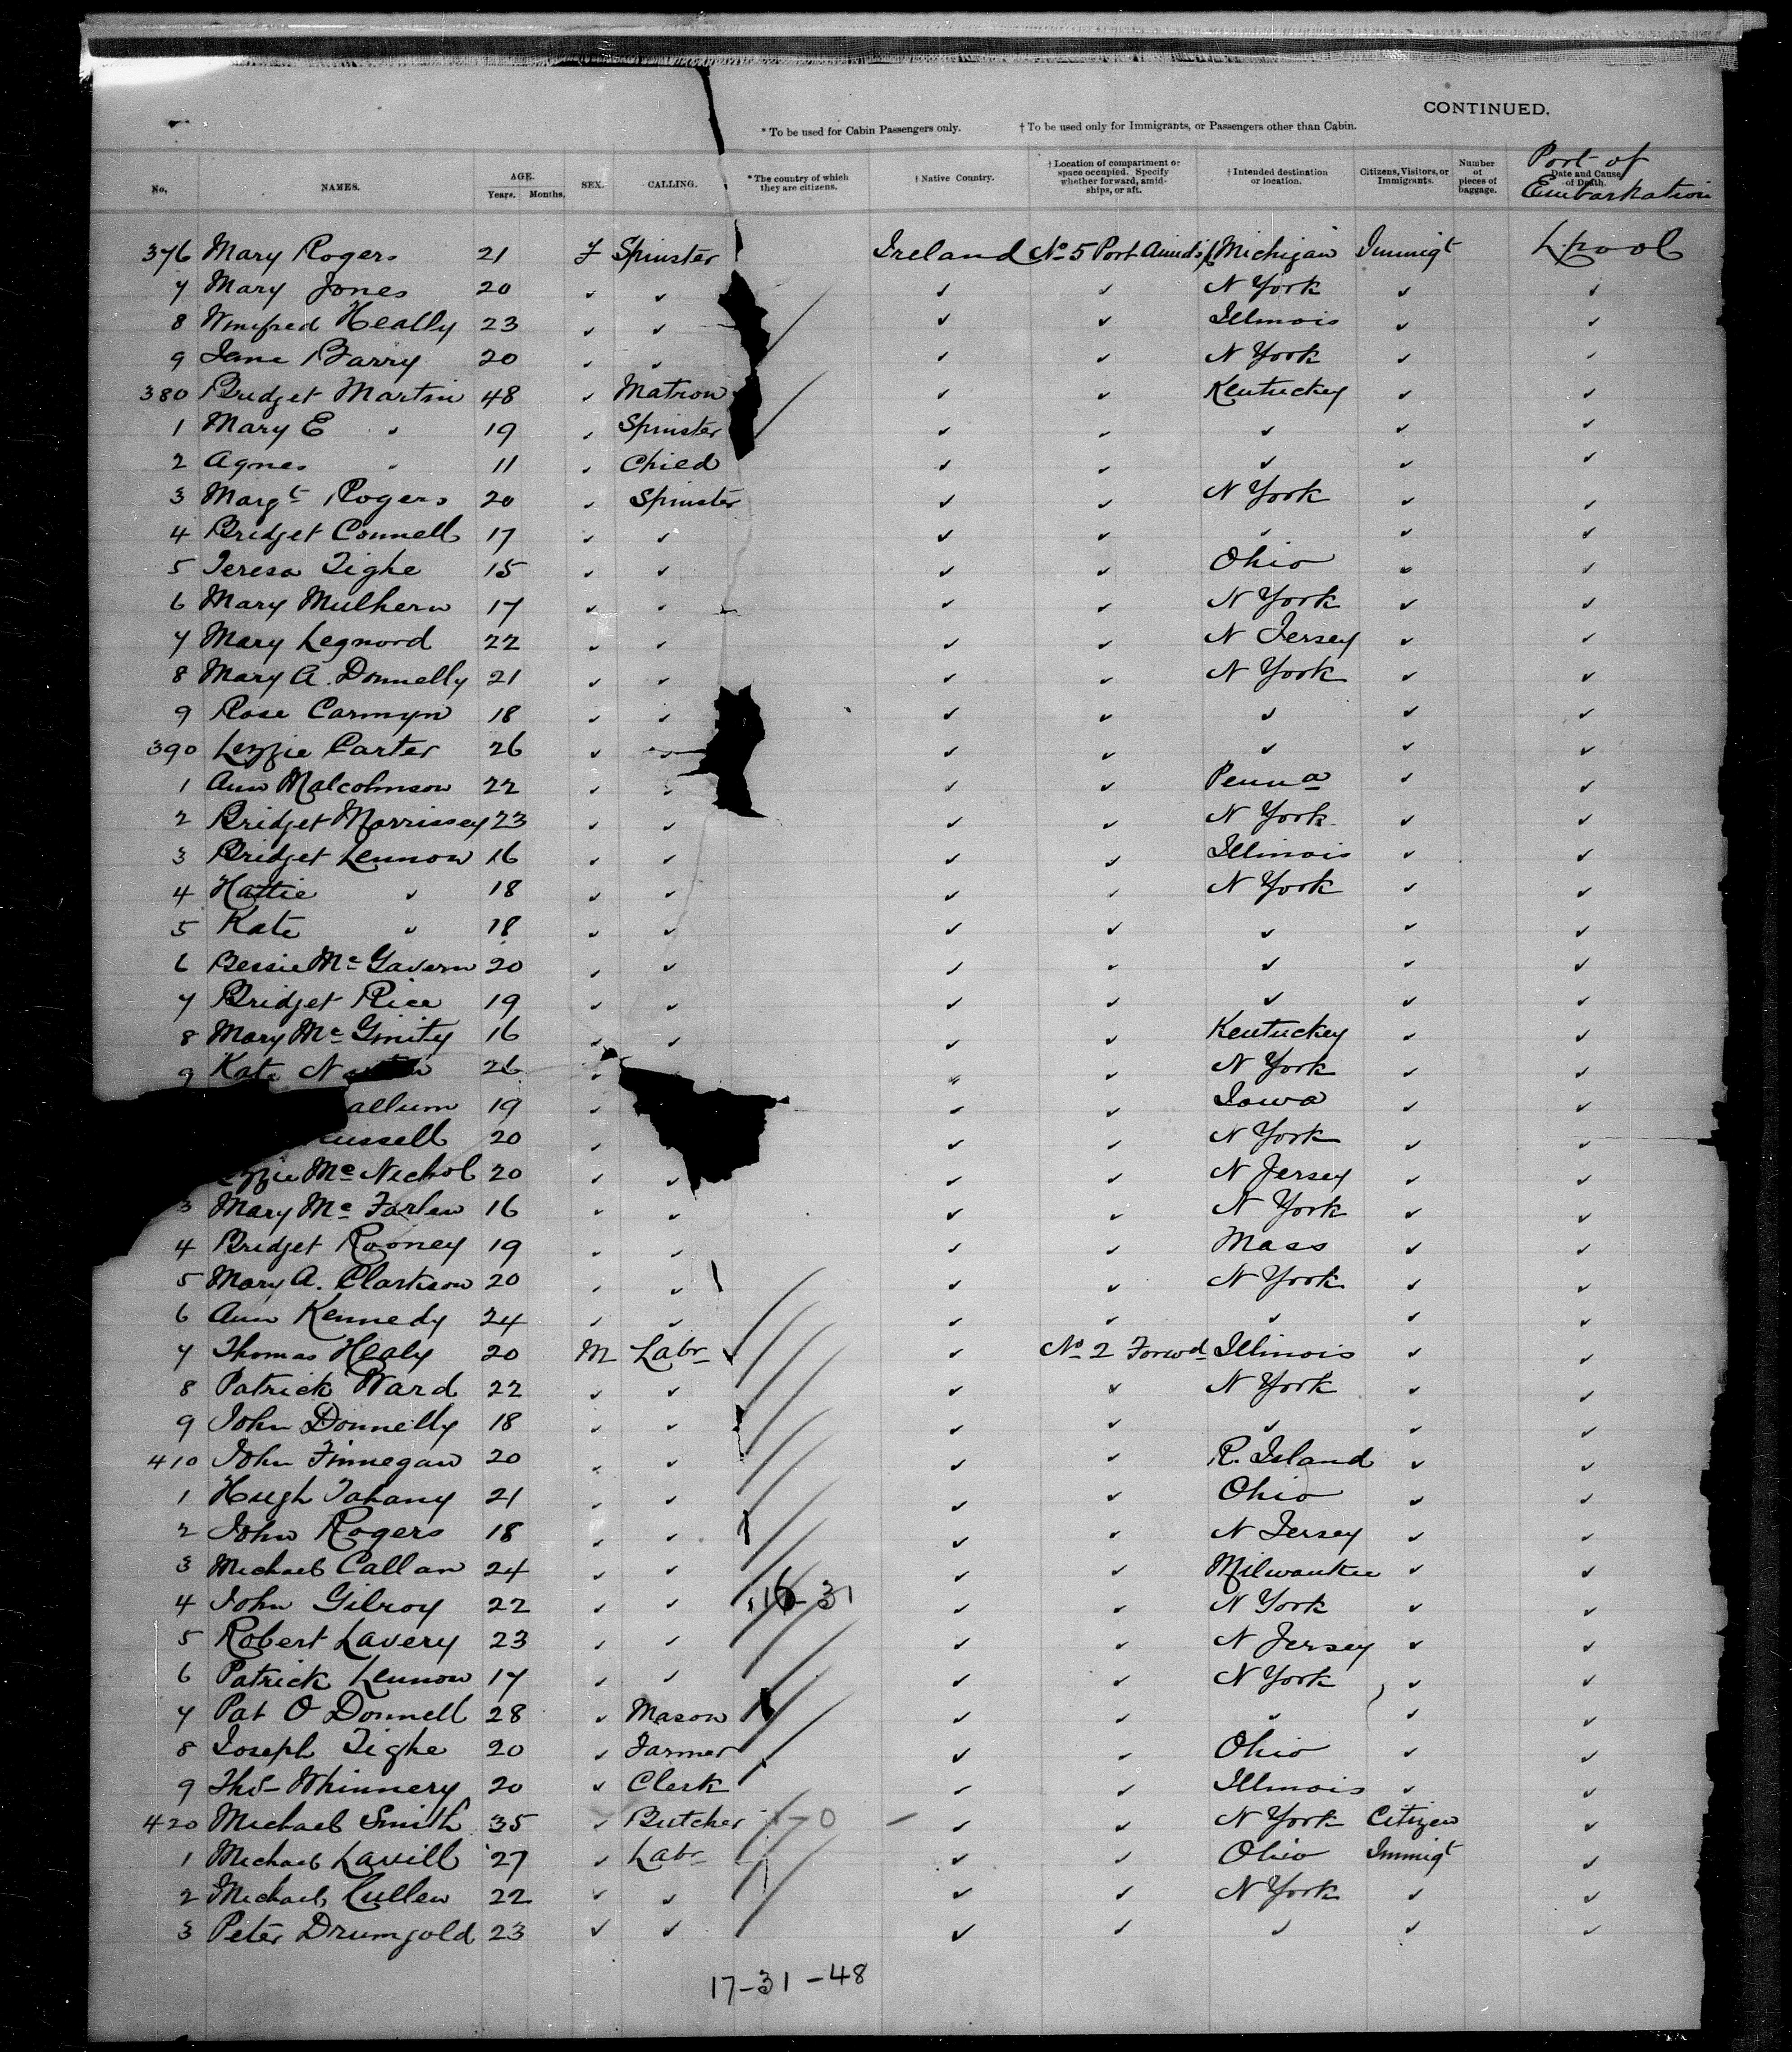 CONTINUED.
* To be used for Cabin Passengers only. † To be used only for Immigrants, or Passengers other than Cabin.
No. NAMES. AGE. Years. Months. SEX. CALLING. * The country of which they are citizens. † Native Country. † Location of compartment or space occupied. Specify whether forward, amidships, or aft. † Intended destination or location. Citizens, Visitors, or Immigrants. Number of pieces of baggage. Date and Cause of Death. Port of Embarkation
376 Mary Rogers 21 F Spinster Ireland No 5 Port Michigan Immigt Lpool
7 Mary Jones 20 ✓ ✓ ✓ ✓ N York ✓ ✓
8 Winifred Heally 23 ✓ ✓ ✓ ✓ Illinois ✓ ✓
9 Jane Barry 20 ✓ ✓ ✓ ✓ N York ✓ ✓
380 Bridget Martin 48 ✓ Matron ✓ ✓ Kentuckey ✓ ✓
1 Mary E ✓ 19 ✓ Spinster ✓ ✓ ✓ ✓ ✓
2 Agnes ✓ 11 ✓ Child ✓ ✓ ✓ ✓ ✓
3 Margt Rogers 20 ✓ Spinster ✓ ✓ N York ✓ ✓
4 Bridget Connell 17 ✓ ✓ ✓ ✓ ✓ ✓ ✓
5 Teresa Tighe 15 ✓ ✓ ✓ ✓ Ohio ✓ ✓
6 Mary Mulhern 17 ✓ ✓ ✓ ✓ N York ✓ ✓
7 Mary Legnord 22 ✓ ✓ ✓ ✓ N Jersey ✓ ✓
8 Mary A. Donnelly 21 ✓ ✓ ✓ ✓ N York ✓ ✓
9 Rose Carmyn 18 ✓ ✓ ✓ ✓ ✓ ✓ ✓
390 Lizzie Carter 26 ✓ ✓ ✓ ✓ ✓ ✓ ✓
1 Ann Malcolmson 22 ✓ ✓ ✓ ✓ Penna ✓ ✓
2 Bridget Morrissey 23 ✓ ✓ ✓ ✓ N York ✓ ✓
3 Bridget Lennon 16 ✓ ✓ ✓ ✓ Illinois ✓ ✓
4 Hattie ✓ 18 ✓ ✓ ✓ ✓ N York ✓ ✓
5 Kate ✓ 18 ✓ ✓ ✓ ✓ ✓ ✓ ✓
6 Bessie Mc Gavern 20 ✓ ✓ ✓ ✓ ✓ ✓ ✓
7 Bridget Rice 19 ✓ ✓ ✓ ✓ ✓ ✓ ✓
8 Mary Mc Ginity 16 ✓ ✓ ✓ ✓ Kentuckey ✓ ✓
9 Kate 26 ✓ ✓ ✓ N York ✓ ✓
allum 19 ✓ ✓ ✓ Iowa ✓ ✓
ussell 20 ✓ ✓ ✓ N York ✓ ✓
zzie Mc Nichol 20 ✓ ✓ ✓ ✓ N Jersey ✓ ✓
3 Mary Mc Farlan 16 ✓ ✓ ✓ ✓ N York ✓ ✓
4 Bridget Rooney 19 ✓ ✓ ✓ ✓ Mass ✓ ✓
5 Mary A. Clarkson 20 ✓ ✓ ✓ ✓ N York ✓ ✓
6 Ann Kennedy 24 ✓ ✓ ✓ ✓ ✓ ✓ ✓
7 Thomas Healy 20 M Labr ✓ No 2 Forwd Illinois ✓ ✓
8 Patrick Ward 22 ✓ ✓ ✓ ✓ N York ✓ ✓
9 John Donnelly 18 ✓ ✓ ✓ ✓ ✓ ✓ ✓
410 John Finnegan 20 ✓ ✓ ✓ ✓ R. Island ✓ ✓
1 Hugh Tahany 21 ✓ ✓ ✓ ✓ Ohio ✓ ✓
2 John Rogers 18 ✓ ✓ ✓ ✓ N Jersey ✓ ✓
3 Michael Callan 24 ✓ ✓ ✓ ✓ Milwaukee ✓ ✓
4 John Gilroy 22 ✓ ✓ 16-31 ✓ ✓ N York ✓ ✓
5 Robert Lavery 23 ✓ ✓ ✓ ✓ N Jersey ✓ ✓
6 Patrick Lennon 17 ✓ ✓ ✓ ✓ N York ✓ ✓
7 Pat O Donnell 28 ✓ Mason ✓ ✓ ✓ ✓ ✓
8 Joseph Tighe 20 ✓ Farmer ✓ ✓ Ohio ✓ ✓
9 Thos Whinnery 20 ✓ Clerk ✓ ✓ Illinois ✓ ✓
420 Michael Smith 35 ✓ Butcher 1-0 ✓ ✓ N York Citizen ✓
1 Michael Lavill 27 ✓ Labr ✓ ✓ Ohio Immigt ✓
2 Michael Cullen 22 ✓ ✓ ✓ ✓ N York ✓ ✓
3 Peter Drumgold 23 ✓ ✓ ✓ ✓ ✓ ✓ ✓
17-31-48